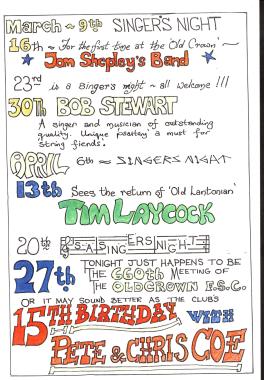 March ~ 9th SINGER'S NIGHT
16th ~ For the first time at the 'Old Crown' ~
Jom Shepley's Band
23rd is a Singer's night ~ all welcome !!!
30TH BOB STEWART
A singer and musician of outstanding
quality. Unique psaltery a must for
string fiends.
APRIL 6th ~ SINGERS NIGHT
13th Sees the return of 'Old Lantonian'
TIM LAYCOCK
20th SINGERS NIGHT
27th TONIGHT JUST HAPPENS TO BE
THE 660th MEETING OF
THE OLDCROWN F.S.C.
OR IT MAY SOUND BETTER AS THE CLUB'S
15TH BIRTHDAY WITH
PETE & CHRIS COE